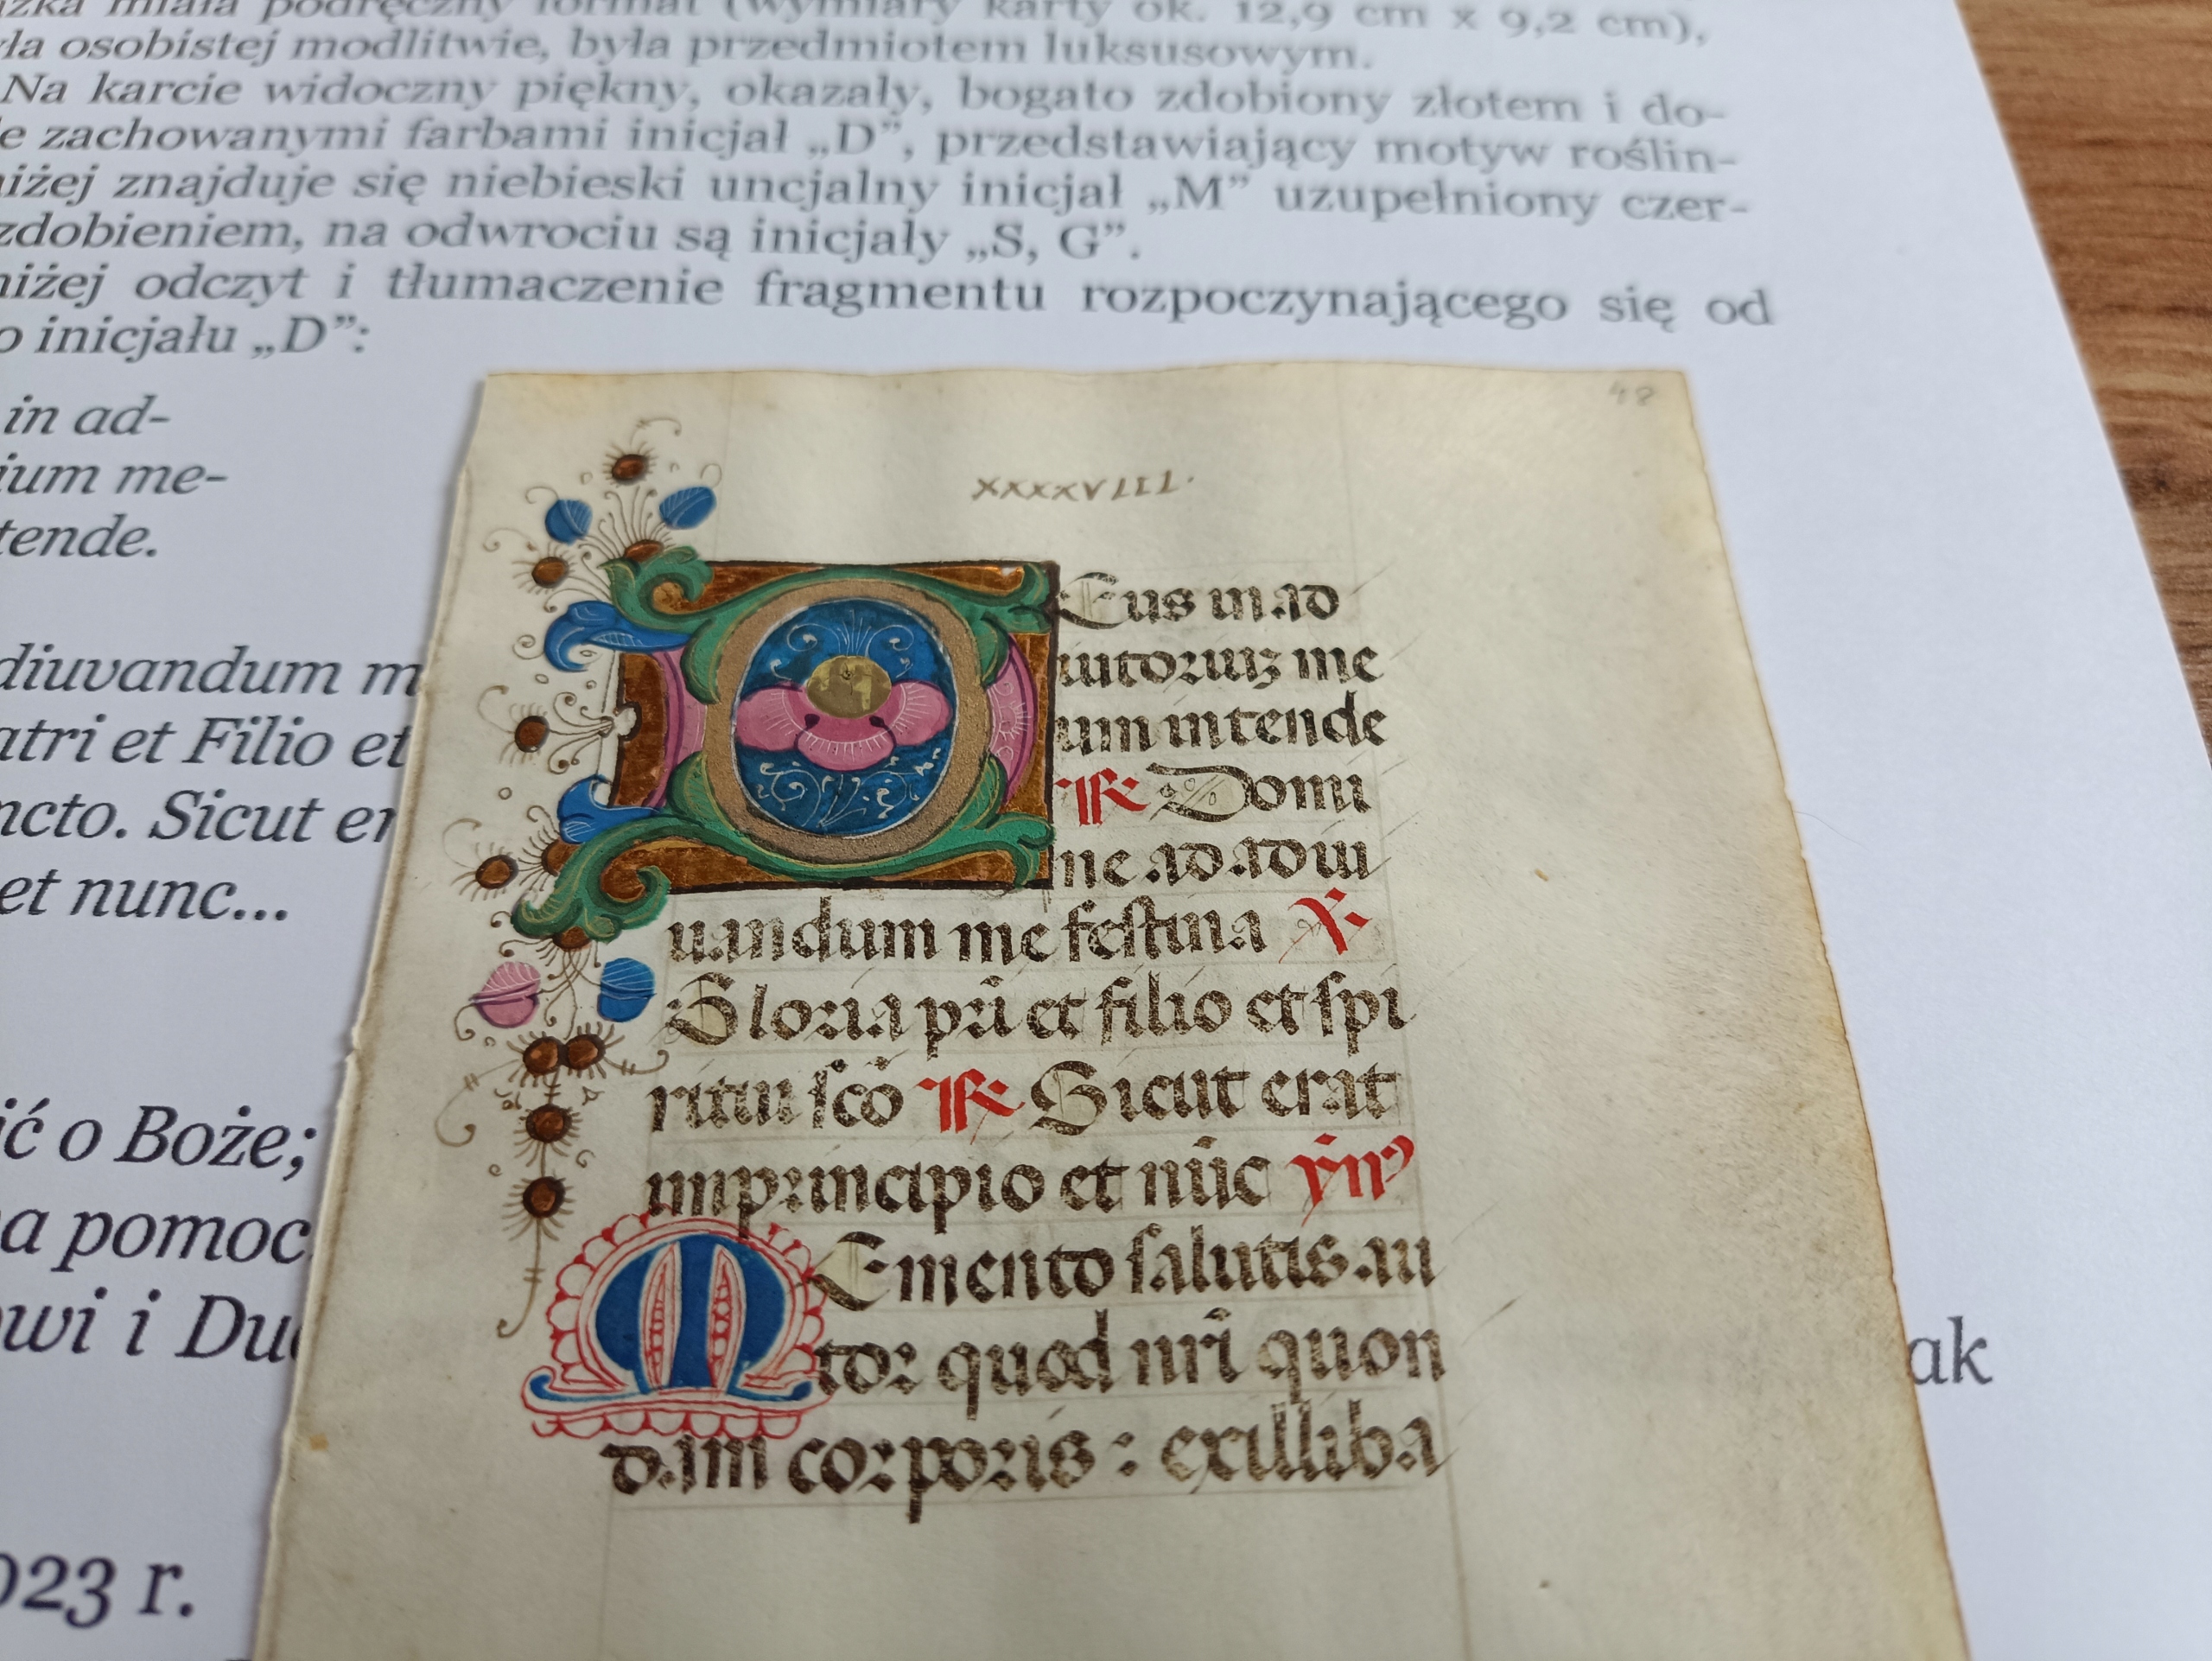 żka miała podręczny format (wymiary karty ok. 12,9 cm x 9,2 cm),
yła osobistej modlitwie, była przedmiotem luksusowym.
Na karcie widoczny piękny, okazały, bogato zdobiony złotem i do-
le zachowanymi farbami inicjał „D”, przedstawiający motyw roślin-
niżej znajduje się niebieski uncjalny inicjał „M” uzupełniony czer-
zdobieniem, na odwrociu są inicjały „S, G”.
niżej odczyt i tłumaczenie fragmentu rozpoczynającego się od
o inicjału „D”:
in ad-
ium me-
tende.
diuvandum m
atri et Filio et
ncto. Sicut er
et nunc...
ić o Boże;
na pomoc.
owi i Duc
ak
023 r.
48
xxxxviii.
DEus in ad
iutoriuꝫ me
um intende
℟ Domi
ne ad adiu
uandum me festina ℣
Gloria pr̄i et filio et spi
ritui sc̄o ℟ Sicut erat
in principio et nūc ẏmꝰ
MEmento salutis au
tor quod nr̄i quon
dam corporis : ex illiba